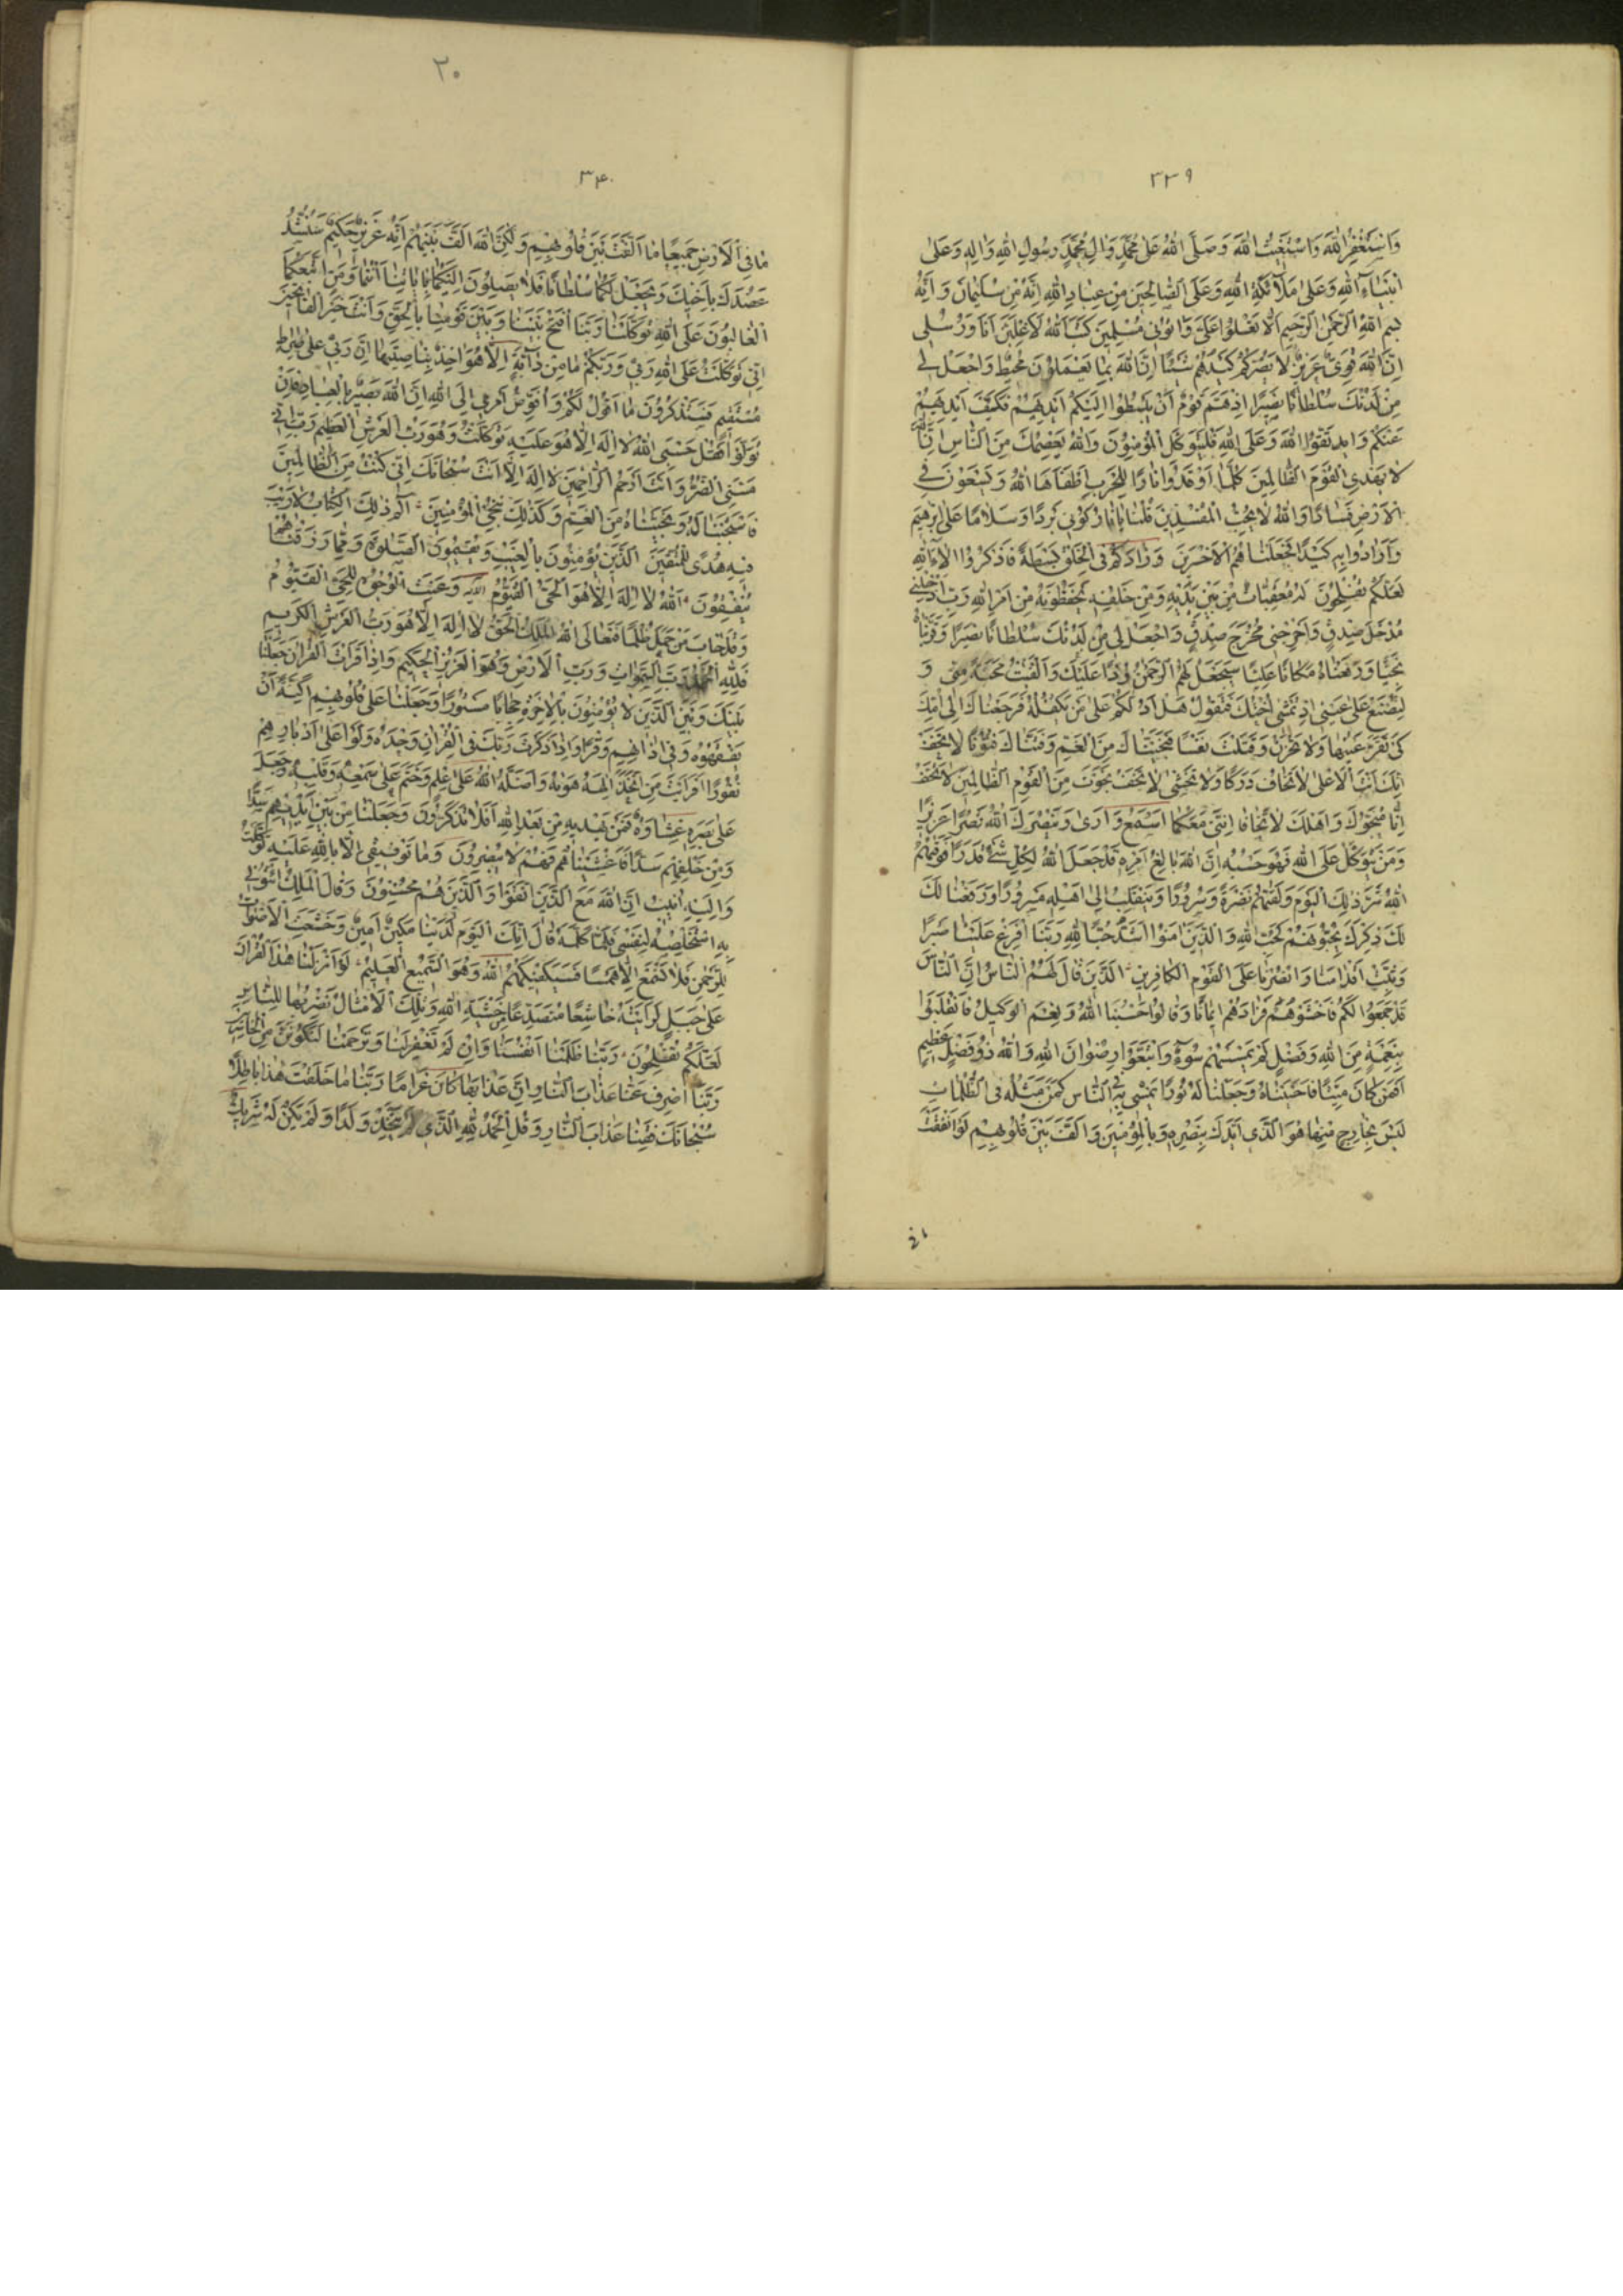 ٣٣٩
وَاَسْتَغْفِرُ اللّٰهَ وَاَسْتَغيثُ اللّٰهَ وَصَلَّى اللّٰهُ عَلىٰ مُحَمَّدٍ وَاٰلِ مُحَمَّدٍ رَسُولِ اللّٰهِ وَاٰلِهِ وَعَلىٰ
اَنْبِيٰاءِ اللّٰهِ وَعَلىٰ مَلاٰئِكَةِ اللّٰهِ وَعَلَى الصّٰالِحِينَ مِنْ عِبٰادِ اللّٰهِ اِنَّهُ مِنْ سُلَيْمٰانَ وَاِنَّهُ
بِسْمِ اللّٰهِ الرَّحْمٰنِ الرَّحِيمِ اَلاّٰ تَعْلُوا عَلَيَّ وَأْتُونِي مُسْلِمِينَ كَتَبَ اللّٰهُ لَاَغْلِبَنَّ اَنَا وَرُسُلِي
اِنَّ اللّٰهَ قَوِيٌّ عَزِيزٌ لاٰ يَضُرُّكُمْ كَيْدُهُمْ شَيْئًا اِنَّ اللّٰهَ بِمٰا يَعْمَلُونَ مُحِيطٌ وَاجْعَلْ لِي
مِنْ لَدُنْكَ سُلْطٰانًا نَصِيرًا اِذْ هَمَّ قَوْمٌ اَنْ يَبْسُطُوا اِلَيْكُمْ اَيْدِيَهُمْ فَكَفَّ اَيْدِيَهُمْ
عَنْكُمْ وَاتَّقُوا اللّٰهَ وَعَلَى اللّٰهِ فَلْيَتَوَكَّلِ الْمُؤْمِنُونَ وَاللّٰهُ يَعْصِمُكَ مِنَ النّٰاسِ اِنَّ اللّٰهَ
لاٰ يَهْدِي الْقَوْمَ الظّٰالِمِينَ كُلَّمٰا اَوْقَدُوا نٰارًا لِلْحَرْبِ اَطْفَاَهَا اللّٰهُ وَيَسْعَوْنَ فِي
الْاَرْضِ فَسٰادًا وَاللّٰهُ لاٰ يُحِبُّ الْمُفْسِدِينَ قُلْنٰا يٰا نٰارُ كُونِي بَرْدًا وَسَلاٰمًا عَلىٰ اِبْرٰهِيمَ
وَاَرٰادُوا بِهِ كَيْدًا فَجَعَلْنٰاهُمُ الْاَخْسَرِينَ وَزٰادَكُمْ فِي الْخَلْقِ بَسْطَةً فَاذْكُرُوا اٰلاٰءَ اللّٰهِ
لَعَلَّكُمْ تُفْلِحُونَ لَهُ مُعَقِّبٰاتٌ مِنْ بَيْنِ يَدَيْهِ وَمِنْ خَلْفِهِ يَحْفَظُونَهُ مِنْ اَمْرِ اللّٰهِ رَبِّ اَدْخِلْنِي
مُدْخَلَ صِدْقٍ وَاَخْرِجْنِي مُخْرَجَ صِدْقٍ وَاجْعَلْ لِي مِنْ لَدُنْكَ سُلْطٰانًا نَصِيرًا وَقَرَّبْنٰاهُ
نَجِيًّا وَرَفَعْنٰاهُ مَكٰانًا عَلِيًّا سَيَجْعَلُ لَهُمُ الرَّحْمٰنُ وُدًّا عَلَيْكَ وَاَلْقَيْتُ مَحَبَّةً مِنّي وَ
لِتُصْنَعَ عَلىٰ عَيْنِي اِذْ تَمْشِي اُخْتُكَ فَتَقُولُ هَلْ اَدُلُّكُمْ عَلىٰ مَنْ يَكْفُلُهُ فَرَجَعْنٰاكَ اِلىٰ اُمِّكَ
كَيْ تَقَرَّ عَيْنُهٰا وَلاٰ تَحْزَنَ وَقَتَلْتَ نَفْسًا فَنَجَّيْنٰاكَ مِنَ الْغَمِّ وَفَتَنّٰاكَ فُتُونًا لاٰ تَخَفْ
اِنَّكَ اَنْتَ الْاَعْلىٰ لاٰ تَخٰافُ دَرَكًا وَلاٰ تَخْشىٰ لاٰ تَخَفْ نَجَوْتَ مِنَ الْقَوْمِ الظّٰالِمِينَ لاٰ تَخَفْ
اِنّٰا مُنَجُّوكَ وَاَهْلَكَ لاٰ تَخٰافٰا اِنَّنِي مَعَكُمٰا اَسْمَعُ وَاَرىٰ وَيَنْصُرَكَ اللّٰهُ نَصْرًا عَزِيزًا
وَمَنْ يَتَوَكَّلْ عَلَى اللّٰهِ فَهُوَ حَسْبُهُ اِنَّ اللّٰهَ بٰالِغُ اَمْرِهِ قَدْ جَعَلَ اللّٰهُ لِكُلِّ شَيْءٍ قَدْرًا فَوَقٰيهُمُ
اللّٰهُ شَرَّ ذٰلِكَ الْيَوْمِ وَلَقّٰيهُمْ نَضْرَةً وَسُرُورًا وَيَنْقَلِبُ اِلىٰ اَهْلِهِ مَسْرُورًا وَرَفَعْنٰا لَكَ
لَكَ ذِكْرَكَ يُحِبُّونَهُمْ كَحُبِّ اللّٰهِ وَالَّذِينَ اٰمَنُوا اَشَدُّ حُبًّا لِلّٰهِ رَبَّنٰا اَفْرِغْ عَلَيْنٰا صَبْرًا
وَثَبِّتْ اَقْدٰامَنٰا وَانْصُرْنٰا عَلَى الْقَوْمِ الْكٰافِرِينَ اَلَّذِينَ قٰالَ لَهُمُ النّٰاسُ اِنَّ النّٰاسَ
قَدْ جَمَعُوا لَكُمْ فَاخْشَوْهُمْ فَزٰادَهُمْ اِيمٰانًا وَقٰالُوا حَسْبُنَا اللّٰهُ وَنِعْمَ الْوَكِيلُ فَانْقَلَبُوا
بِنِعْمَةٍ مِنَ اللّٰهِ وَفَضْلٍ لَمْ يَمْسَسْهُمْ سُوءٌ وَاتَّبَعُوا رِضْوٰانَ اللّٰهِ وَاللّٰهُ ذُو فَضْلٍ عَظِيمٍ
اَفَمَنْ كٰانَ مَيْتًا فَاَحْيَيْنٰاهُ وَجَعَلْنٰا لَهُ نُورًا يَمْشِي بِهِ فِي النّٰاسِ كَمَنْ مَثَلُهُ فِي الظُّلُمٰاتِ
لَيْسَ بِخٰارِجٍ مِنْهٰا هُوَ الَّذِي اَيَّدَكَ بِنَصْرِهِ وَبِالْمُؤْمِنِينَ وَاَلَّفَ بَيْنَ قُلُوبِهِمْ لَوْ اَنْفَقْتَ
٣٠
٣٤٠
مٰا فِي الْاَرْضِ جَمِيعًا مٰا اَلَّفْتَ بَيْنَ قُلُوبِهِمْ وَلٰكِنَّ اللّٰهَ اَلَّفَ بَيْنَهُمْ اِنَّهُ عَزِيزٌ حَكِيمٌ سَنَشُدُّ
عَضُدَكَ بِاَخِيكَ وَنَجْعَلُ لَكُمٰا سُلْطٰانًا فَلاٰ يَصِلُونَ اِلَيْكُمٰا بِاٰيٰاتِنٰا اَنْتُمٰا وَمَنِ اتَّبَعَكُمَا
الْغٰالِبُونَ عَلَى اللّٰهِ تَوَكَّلْنٰا رَبَّنَا افْتَحْ بَيْنَنٰا وَبَيْنَ قَوْمِنٰا بِالْحَقِّ وَاَنْتَ خَيْرُ الْفٰاتِحِينَ
اِنّي تَوَكَّلْتُ عَلَى اللّٰهِ رَبّي وَرَبِّكُمْ مٰا مِنْ دٰابَّةٍ اِلاّٰ هُوَ اٰخِذٌ بِنٰاصِيَتِهٰا اِنَّ رَبّي عَلىٰ صِرٰاطٍ
مُسْتَقِيمٍ فَسَتَذْكُرُونَ مٰا اَقُولُ لَكُمْ وَاُفَوِّضُ اَمْرِي اِلَى اللّٰهِ اِنَّ اللّٰهَ بَصِيرٌ بِالْعِبٰادِ فَاِنْ
تَوَلَّوْا فَقُلْ حَسْبِيَ اللّٰهُ لاٰ اِلٰهَ اِلاّٰ هُوَ عَلَيْهِ تَوَكَّلْتُ وَهُوَ رَبُّ الْعَرْشِ الْعَظِيمِ رَبِّ اِنّي
مَسَّنِيَ الضُّرُّ وَاَنْتَ اَرْحَمُ الرّٰاحِمِينَ لاٰ اِلٰهَ اِلاّٰ اَنْتَ سُبْحٰانَكَ اِنّي كُنْتُ مِنَ الظّٰالِمِينَ
فَاسْتَجَبْنٰا لَهُ وَنَجَّيْنٰاهُ مِنَ الْغَمِّ وَكَذٰلِكَ نُنْجِي الْمُؤْمِنِينَ الٓمٓ ذٰلِكَ الْكِتٰابُ لاٰ رَيْبَ
فِيهِ هُدًى لِلْمُتَّقِينَ الَّذِينَ يُؤْمِنُونَ بِالْغَيْبِ وَيُقِيمُونَ الصَّلٰوةَ وَمِمّٰا رَزَقْنٰاهُمْ
يُنْفِقُونَ اَللّٰهُ لاٰ اِلٰهَ اِلاّٰ هُوَ الْحَيُّ الْقَيُّومُ وَعَنَتِ الْوُجُوهُ لِلْحَيِّ الْقَيُّومِ
وَقَدْ خٰابَ مَنْ حَمَلَ ظُلْمًا فَتَعٰالَى اللّٰهُ الْمَلِكُ الْحَقُّ لاٰ اِلٰهَ اِلاّٰ هُوَ رَبُّ الْعَرْشِ الْكَرِيمِ
فَلِلّٰهِ الْحَمْدُ رَبِّ السَّمٰوٰاتِ وَرَبِّ الْاَرْضِ وَهُوَ الْعَزِيزُ الْحَكِيمُ وَاِذٰا قَرَأْتَ الْقُرْاٰنَ جَعَلْنٰا
بَيْنَكَ وَبَيْنَ الَّذِينَ لاٰ يُؤْمِنُونَ بِالْاٰخِرَةِ حِجٰابًا مَسْتُورًا وَجَعَلْنٰا عَلىٰ قُلُوبِهِمْ اَكِنَّةً اَنْ
يَفْقَهُوهُ وَفِي اٰذٰانِهِمْ وَقْرًا وَاِذٰا ذَكَرْتَ رَبَّكَ فِي الْقُرْاٰنِ وَحْدَهُ وَلَّوْا عَلىٰ اَدْبٰارِهِمْ
نُفُورًا اَفَرَاَيْتَ مَنِ اتَّخَذَ اِلٰهَهُ هَوٰيهُ وَاَضَلَّهُ اللّٰهُ عَلىٰ عِلْمٍ وَخَتَمَ عَلىٰ سَمْعِهِ وَقَلْبِهِ وَجَعَلَ
عَلىٰ بَصَرِهِ غِشٰاوَةً فَمَنْ يَهْدِيهِ مِنْ بَعْدِ اللّٰهِ اَفَلاٰ تَذَكَّرُونَ وَجَعَلْنٰا مِنْ بَيْنِ اَيْدِيهِمْ سَدًّا
وَمِنْ خَلْفِهِمْ سَدًّا فَاَغْشَيْنٰاهُمْ فَهُمْ لاٰ يُبْصِرُونَ وَمٰا تَوْفِيقِي اِلاّٰ بِاللّٰهِ عَلَيْهِ تَوَكَّلْتُ
وَاِلَيْهِ اُنِيبُ اِنَّ اللّٰهَ مَعَ الَّذِينَ اتَّقَوْا وَالَّذِينَ هُمْ مُحْسِنُونَ وَقٰالَ الْمَلِكُ ائْتُونِي
بِهِ اَسْتَخْلِصْهُ لِنَفْسِي فَلَمّٰا كَلَّمَهُ قٰالَ اِنَّكَ الْيَوْمَ لَدَيْنٰا مَكِينٌ اَمِينٌ وَخَشَعَتِ الْاَصْوٰاتُ
لِلرَّحْمٰنِ فَلاٰ تَسْمَعُ اِلاّٰ هَمْسًا فَسَيَكْفِيكَهُمُ اللّٰهُ وَهُوَ السَّمِيعُ الْعَلِيمُ لَوْ اَنْزَلْنٰا هٰذَا الْقُرْاٰنَ
عَلىٰ جَبَلٍ لَرَاَيْتَهُ خٰاشِعًا مُتَصَدِّعًا مِنْ خَشْيَةِ اللّٰهِ وَتِلْكَ الْاَمْثٰالُ نَضْرِبُهٰا لِلنّٰاسِ
لَعَلَّكُمْ تُفْلِحُونَ رَبَّنٰا ظَلَمْنٰا اَنْفُسَنٰا وَاِنْ لَمْ تَغْفِرْ لَنٰا وَتَرْحَمْنٰا لَنَكُونَنَّ مِنَ الْخٰاسِرِينَ
رَبَّنَا اصْرِفْ عَنّٰا عَذٰابَ النّٰارِ اِنَّ عَذٰابَهٰا كٰانَ غَرٰامًا رَبَّنٰا مٰا خَلَقْتَ هٰذٰا بٰاطِلًا
سُبْحٰانَكَ فَقِنٰا عَذٰابَ النّٰارِ وَقُلِ الْحَمْدُ لِلّٰهِ الَّذِي لَمْ يَتَّخِذْ وَلَدًا وَلَمْ يَكُنْ لَهُ شَرِيكٌ